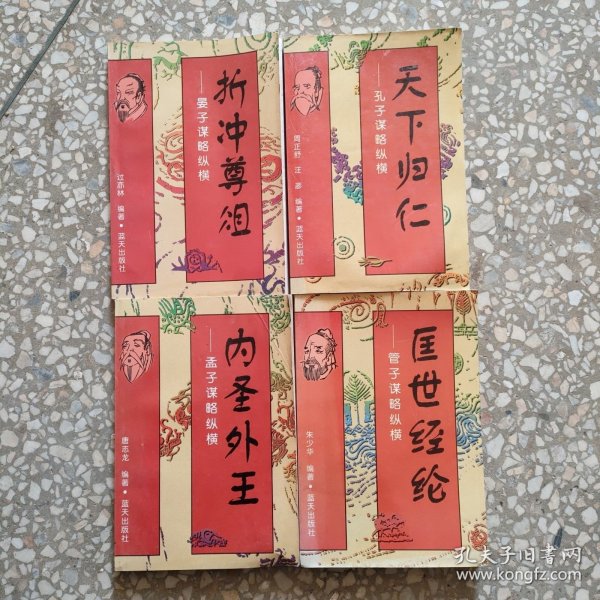 折冲尊俎
——晏子谋略纵横
过亦林 编著·蓝天出版社
天下归仁
——孔子谋略纵横
周正舒 汪澎 编著·蓝天出版社
内圣外王
——孟子谋略纵横
唐志龙 编著·蓝天出版社
匡世经纶
——管子谋略纵横
朱少华 编著·蓝天出版社
孔夫子旧书网
www.kongfz.com